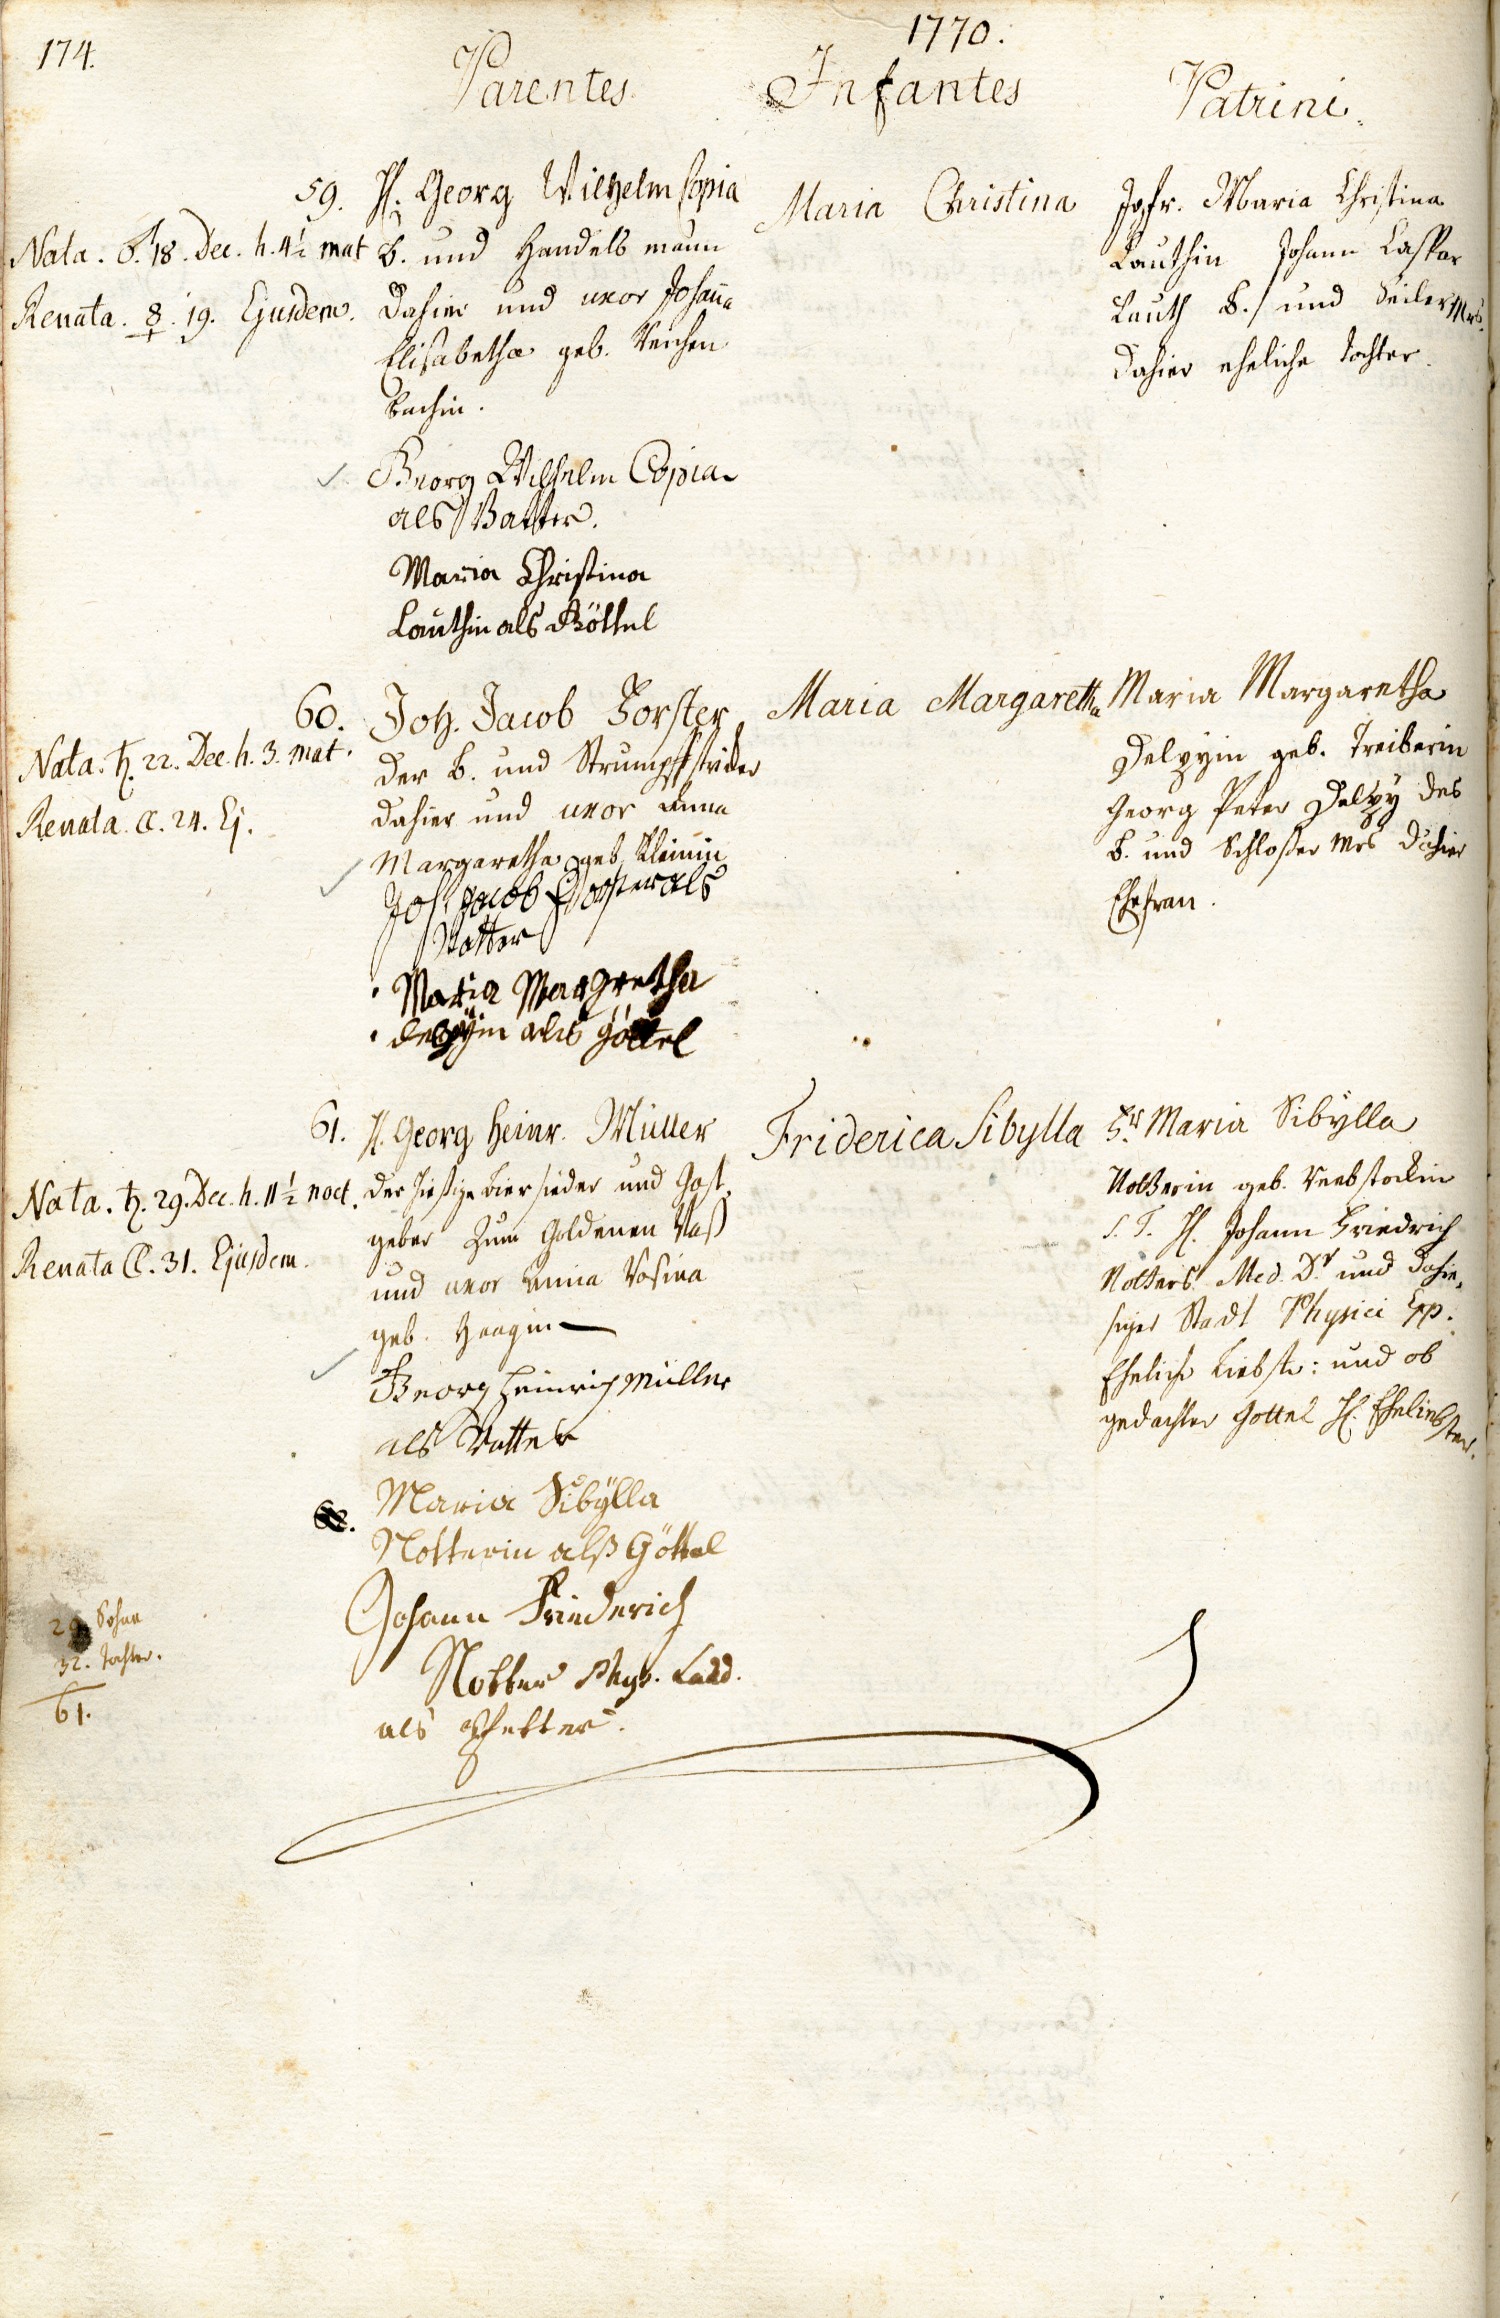 174.
1770.
Parentes.
Infantes
Patrini.
59. H. Georg Wilhelm Copia
Nata. ♂. 18. Dec. h. 4½ mat
B. und Handelsmann
Renata. ☿. 19. Ejusdem.
dahier und uxor Johanna
Elisabetha geb. Reichen
bachin.
Maria Christina
Jgfr. Maria Christina
Lauthin Johann Caspar
Lauth B. und Seiler Mrs.
dahier eheliche Tochter.
Georg Wilhelm Copia
als Vatter.
Maria Christina
Lauthin als Göttel
60. Joh. Jacob Forster
Nata. ♄. 22. Dec. h. 3. mat.
der B. und Strumpffstricker
Renata. ☾. 24. Ej.
dahier und uxor Anna
Margaretha geb. Kleinin
Maria Margaretha
Maria Margaretha
Delpyin geb. Treiberin
Georg Peter Delpy des
B. und Schloßer Mrs dahier
Ehefrau.
Joh. Jacob Forster als
Vatter
Maria Margretha
delpÿin als göttel
61. H. Georg Heinr. Müller
Nata. ♄. 29. Dec. h. 11½ noct.
der hießige Biersieder und Gast
geber zum Goldenen Faß
Renata ☾. 31. Ejusdem.
und uxor Anna Rosina
geb. Haagin
Friderica Sibylla
Maria Sibylla
Notterin geb. Rebstockin
S. T. H. Johann Friedrich
Notters Med. Dr. und dahie,
siger Stadt Physici
Eheliche Liebste: und ob
gedachter Gottel H. Eheliebster.
Georg Heinrich Müller
als Vatter
Maria Sibÿlla
Notterin alß Göttel
Johann Friederich
Notter Phys.
als Pfetter.
29. Sohne
32. Tochter.
61.